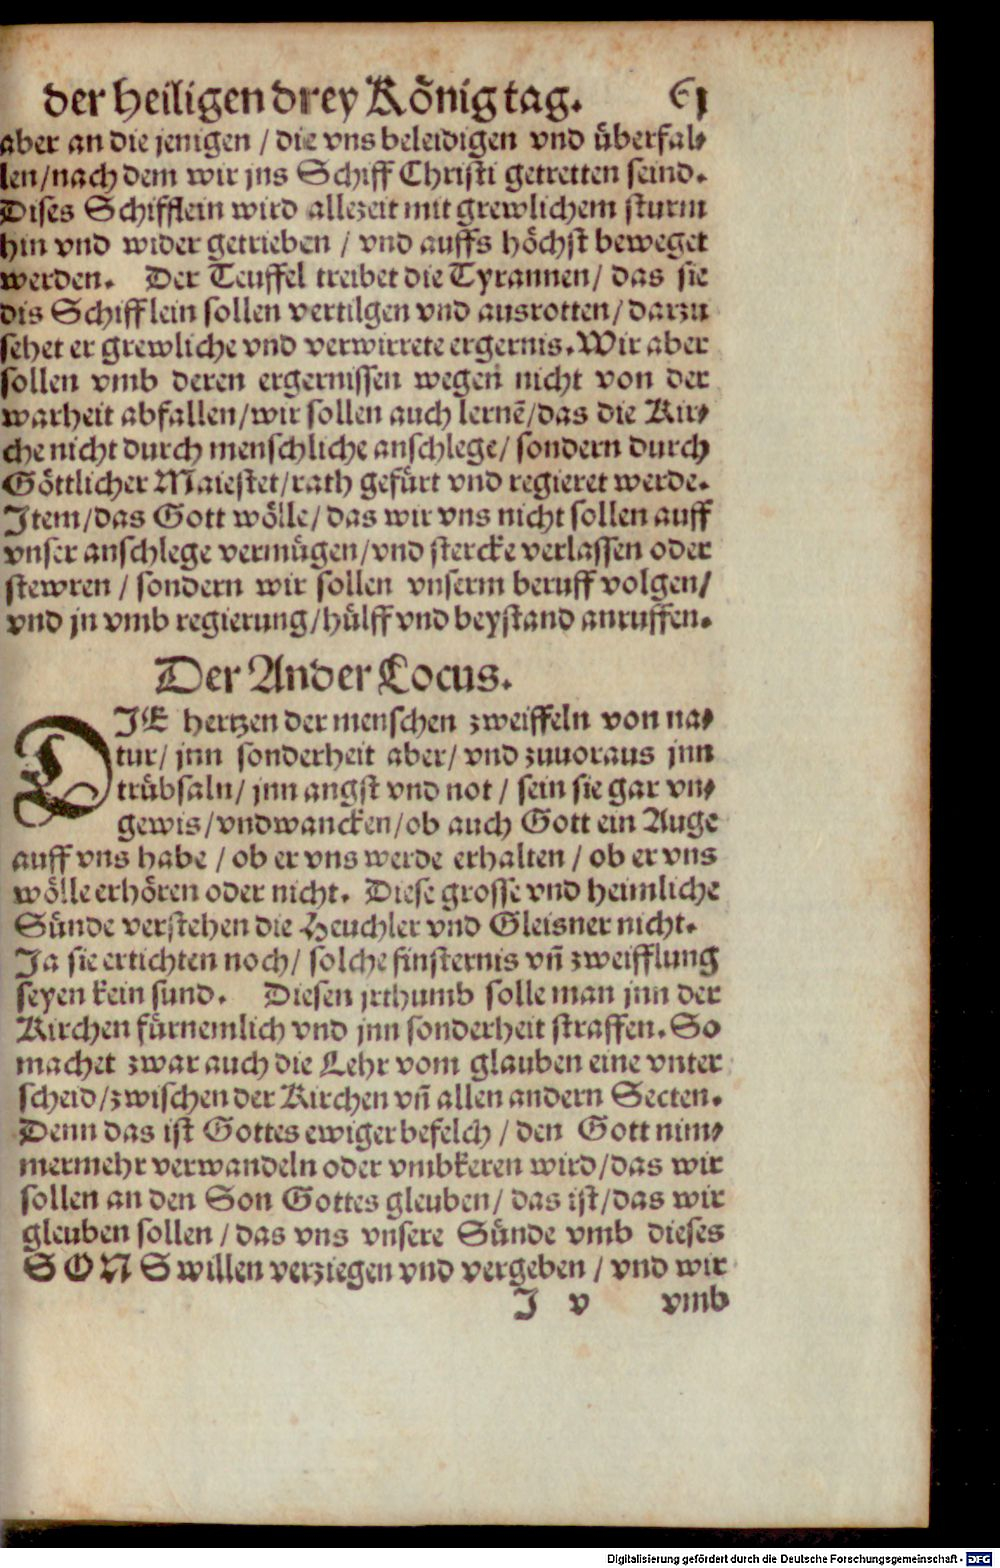 der heiligen drey König tag. 61
aber an die jenigen / die vns beleidigen vnd überfal⸗
len/nach dem wir jns Schiff Christi getretten seind.
Dises Schifflein wird allezeit mit grewlichem sturm
hin vnd wider getrieben / vnd auffs höchst beweget
werden. Der Teuffel treibet die Tyrannen/ das sie
dis Schifflein sollen vertilgen vnd ausrotten/ darzu
sehet er grewliche vnd verwirrete ergernis. Wir aber
sollen vmb deren ergernissen wegen nicht von der
warheit abfallen/wir sollen auch lernẽ/das die Kir⸗
che nicht durch menschliche anschlege/ sondern durch
Göttlicher Maiestet/rath gefürt vnd regieret werde.
Item/das Gott wölle/ das wir vns nicht sollen auff
vnser anschlege vermügen/vnd stercke verlassen oder
stewren / sondern wir sollen vnserm beruff volgen/
vnd jn vmb regierung/hülff vnd beystand anruffen.
Der Ander Locus.
DIE hertzen der menschen zweiffeln von na⸗
tur/ jnn sonderheit aber/ vnd zuuoraus jnn
trübsaln/ jnn angst vnd not / sein sie gar vn⸗
gewis/vnd wancken/ob auch Gott ein Auge
auff vns habe / ob er vns werde erhalten / ob er vns
wölle erhören oder nicht. Diese grosse vnd heimliche
Sünde verstehen die Heuchler vnd Gleisner nicht.
Ja sie ertichten noch/ solche finsternis vñ zweifflung
seyen kein sund. Diesen jrthumb solle man jnn der
Kirchen fürnemlich vnd jnn sonderheit straffen. So
machet zwar auch die Lehr vom glauben eine vnter
scheid/zwischen der Kirchen vñ allen andern Secten.
Denn das ist Gottes ewiger befelch / den Gott nim⸗
mermehr verwandeln oder vmbkeren wird/das wir
sollen an den Son Gottes gleuben/ das ist/das wir
gleuben sollen / das vns vnsere Sünde vmb dieses
SONS willen verziegen vnd vergeben / vnd wir
I v vmb
Digitalisierung gefördert durch die Deutsche Forschungsgemeinschaft - DFG